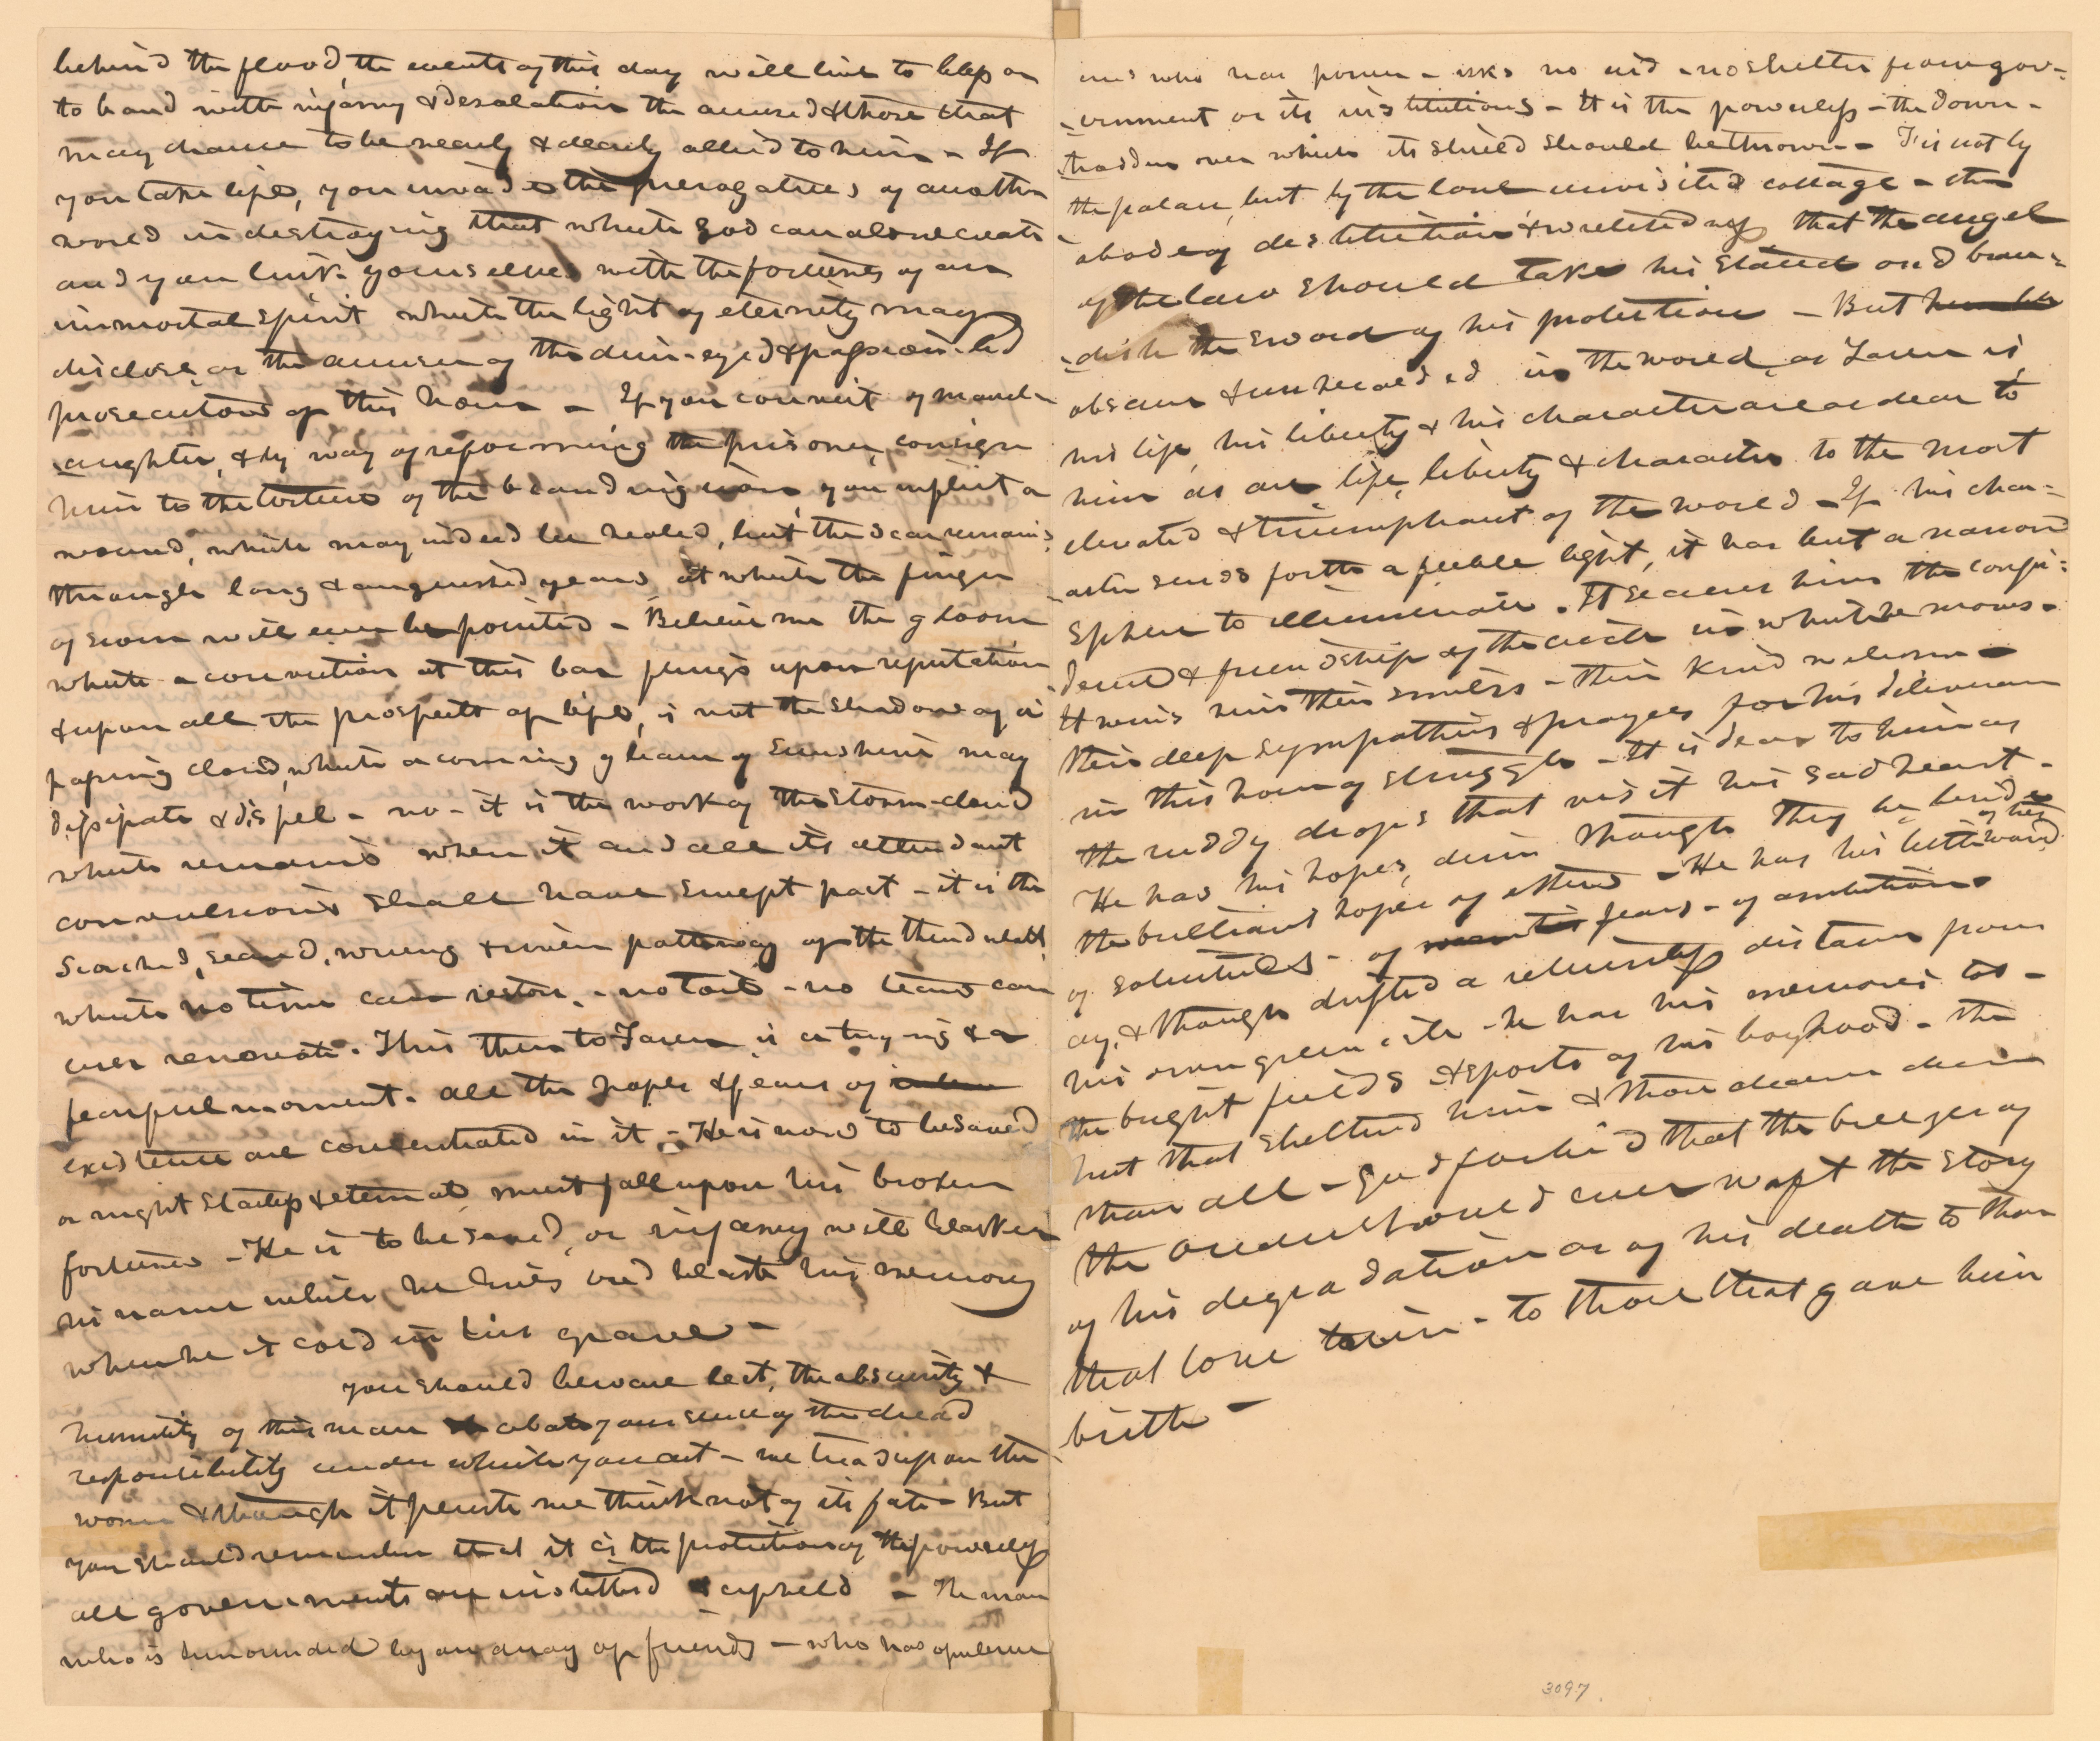 behind the flood, the events of this day will live to help on
to hand with infamy & desolation the accused & those that
may chance to be nearly & dearly allied to him - If
you take life, you invade the prerogatives of another
world in destroying that which God can alone create
and you link yourselves with the fortunes of an
immortal spirit which the light of eternity may
disclose as the accuser of the dim-eyed & passion-led
prosecutors of this hour - If you convict of mansl-
aughter, & by way of reforming the prisoner, consign
him to the torture of the branding iron, you inflict a
wound, which may indeed be healed, but the scar remains
through long & anguished years at which the finger
of scorn will ever be pointed - Believe me the gloom
which a conviction at this bar flings upon reputation
& upon all the prospects of life, is not the shadow of a
passing cloud, which a coming gleam of sunshine may
dissipate & dispel - no - it is the work of the storm-cloud
which remains when it and all its attendant
convulsions shall have swept past - it is the
scorched, seared, wrung & riven pathway of the thunderbolt
which no time can restore - no toil - no tears can
ever renovate. This then to Faren is a trying & a
fearful moment. all the hopes & fears of
existence are concentrated in it - He is now to be saved
or night starless & eternal, must fall upon his broken
fortunes - He is to be saved, or infamy will blacken
his name while he lives and blast his memory
when he is cold in his grave -
You should beware lest, the obscurity &
humility of this man abate your sense of the dread
responsibility under which you act - we tread upon the
worm & though it perish we think not of its fate - But
you should remember that it is the protection of the powerless
all governments are instituted & upheld - The man
who is surrounded by an array of friends - who has opulence
and who has power - asks no aid - no shelter from gov-
-ernment or its institutions - It is the powerless - the down-
trodden over which its shield should be thrown - Tis not by
the palace, but by the lone unvisited cottage - the
abode of destitution & wretchedness that the angel
of the law should take his stand and bran-
-dish the sword of his protection - But
obscure & unheralded in the world, as Faren is,
his life, his liberty & his character are as dear to
him as are life, liberty & character to the most
elevated & triumphant of the world - If his char-
-acter sends forth a feeble light, it has but a narrow
sphere to illuminate. It secures him the confi-
dence & friendship of the circle in which he moves.
It wins him their smiles - their kind welcome -
their deep sympathies & prayers for his deliverance
in this hour of struggle - It is dear to him as
the ruddy drops that visit his sad heart -
He has his hopes, dim though they be, beside
the brilliant hopes of others - He has his little world
of his
of solicitudes - of fears - of ambition
ay, & though drifted a returnless distance from
his own green isle - he has his memories too -
the bright fields & sports of his boyhood - the
hut that sheltered him & those dearer
than all - God forbid that the breezes of
the ocean should ever waft the story
of his degradation or of his death to those
that love him - to those that gave him
birth -
3097